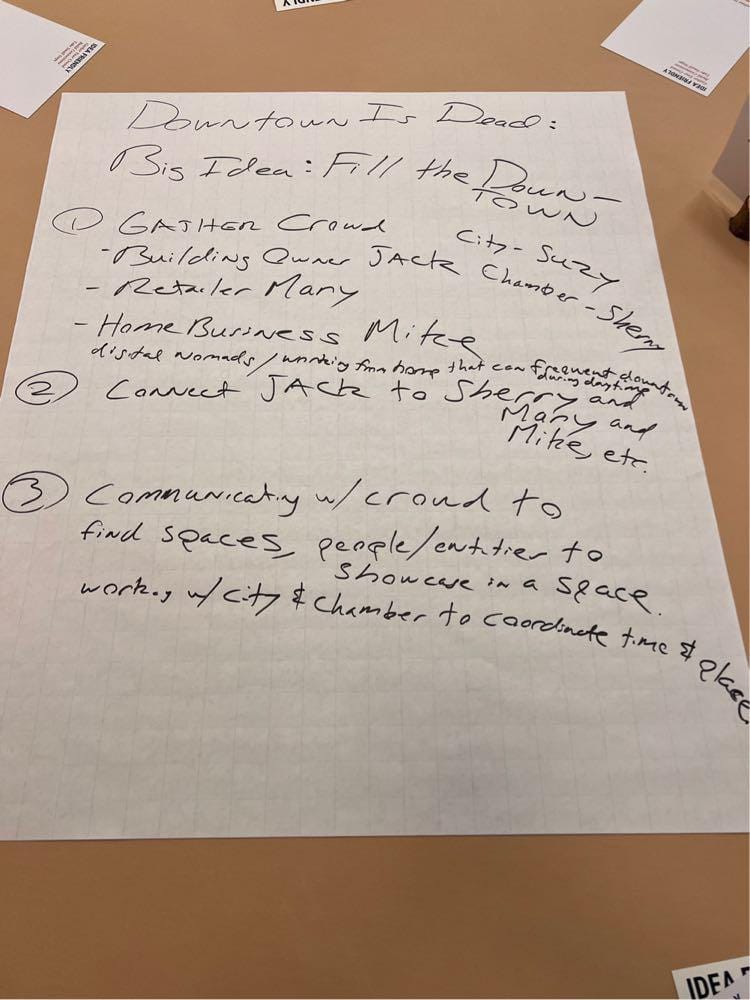 IDEA FRIENDLY
Gather Your Crowd
Build Connections
Take Small Steps
IDEA FRIENDLY
Gather Your Crowd
Build Connections
Take Small Steps
Downtown Is Dead:
Big Idea: Fill the Down-
TOWN
① GATHER Crowd
City - Suzy
- Building Owner JACK
Chamber - Sherry
- Retailer Mary
- Home Business Mike
digital nomads / working from home that can frequent downtown
during daytime
② Connect JACK to Sherry and
Mary and
Mike, etc.
③ Communicating w/ crowd to
find spaces, people/entities to
showcase in a space.
working w/ city & chamber to coordinate time & place
IDEA F